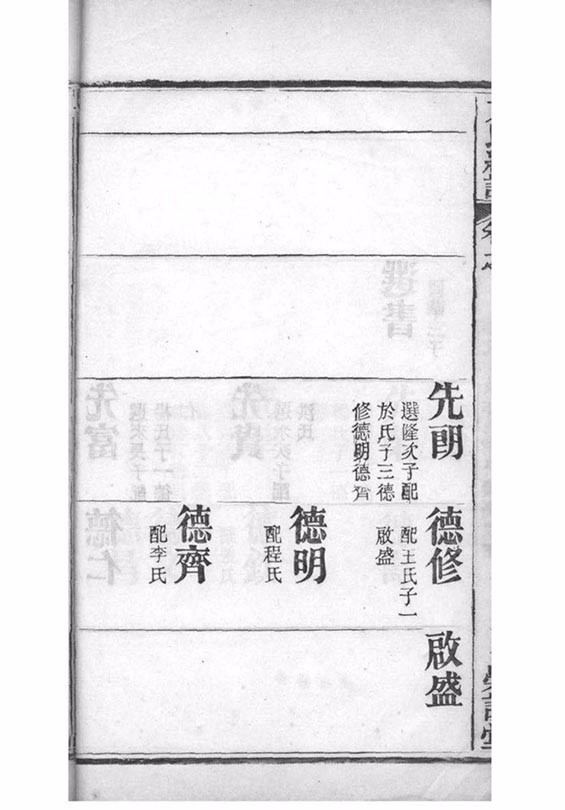 先朗
選隆次子配
於氏子三德
修德明德齊
德修
配王氏子一
啟盛
德明
配程氏
德齊
配李氏
啟盛